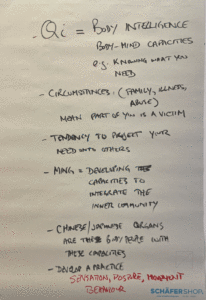 . Qi = BODY INTELLIGENCE
BODY-MIND CAPACITIES
e.g. KNOWING WHAT YOU
NEED
- CIRCUMSTANCES, (FAMILY, ILLNESS,
ABUSE)
MEAN PART OF YOU IS A VICTIM
- TENDENCY TO PROJECT YOUR
NEED ONTO OTHERS
- MING = DEVELOPING
CAPACITIES TO
INTEGRATE THE
INNER COMMUNITY
- CHINESE/JAPANESE ORGANS
ARE THE BODY WITH
THESE CAPACITIES
- DEVELOP A PRACTICE
SENSATION, POSTURE, MOVEMENT
BEHAVIOUR
SCHÄFER SHOP